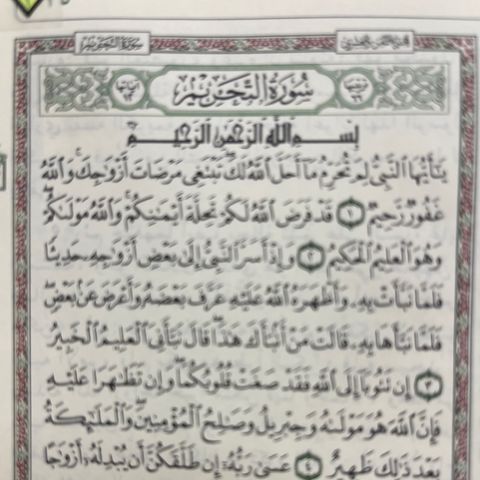 سُورَةُ التَّحْرِيمِ
سُورَةُ التَّحْرِيمِ
بِسْمِ ٱللَّهِ ٱلرَّحْمَٰنِ ٱلرَّحِيمِ
يَٰٓأَيُّهَا ٱلنَّبِىُّ لِمَ تُحَرِّمُ مَآ أَحَلَّ ٱللَّهُ لَكَۖ تَبْتَغِى مَرْضَاتَ أَزْوَٰجِكَۚ وَٱللَّهُ
غَفُورٌ رَّحِيمٌ ١ قَدْ فَرَضَ ٱللَّهُ لَكُمْ تَحِلَّةَ أَيْمَٰنِكُمْۚ وَٱللَّهُ مَوْلَىٰكُمْۖ
وَهُوَ ٱلْعَلِيمُ ٱلْحَكِيمُ ٢ وَإِذْ أَسَرَّ ٱلنَّبِىُّ إِلَىٰ بَعْضِ أَزْوَٰجِهِۦ حَدِيثًا
فَلَمَّا نَبَّأَتْ بِهِۦ وَأَظْهَرَهُ ٱللَّهُ عَلَيْهِ عَرَّفَ بَعْضَهُۥ وَأَعْرَضَ عَنۢ بَعْضٍۖ
فَلَمَّا نَبَّأَهَا بِهِۦ قَالَتْ مَنْ أَنۢبَأَكَ هَٰذَاۖ قَالَ نَبَّأَنِىَ ٱلْعَلِيمُ ٱلْخَبِيرُ
٣ إِن تَتُوبَآ إِلَى ٱللَّهِ فَقَدْ صَغَتْ قُلُوبُكُمَاۖ وَإِن تَظَٰهَرَا عَلَيْهِ
فَإِنَّ ٱللَّهَ هُوَ مَوْلَىٰهُ وَجِبْرِيلُ وَصَٰلِحُ ٱلْمُؤْمِنِينَۖ وَٱلْمَلَٰٓئِكَةُ
بَعْدَ ذَٰلِكَ ظَهِيرٌ ٤ عَسَىٰ رَبُّهُۥٓ إِن طَلَّقَكُنَّ أَن يُبْدِلَهُۥٓ أَزْوَٰجًا